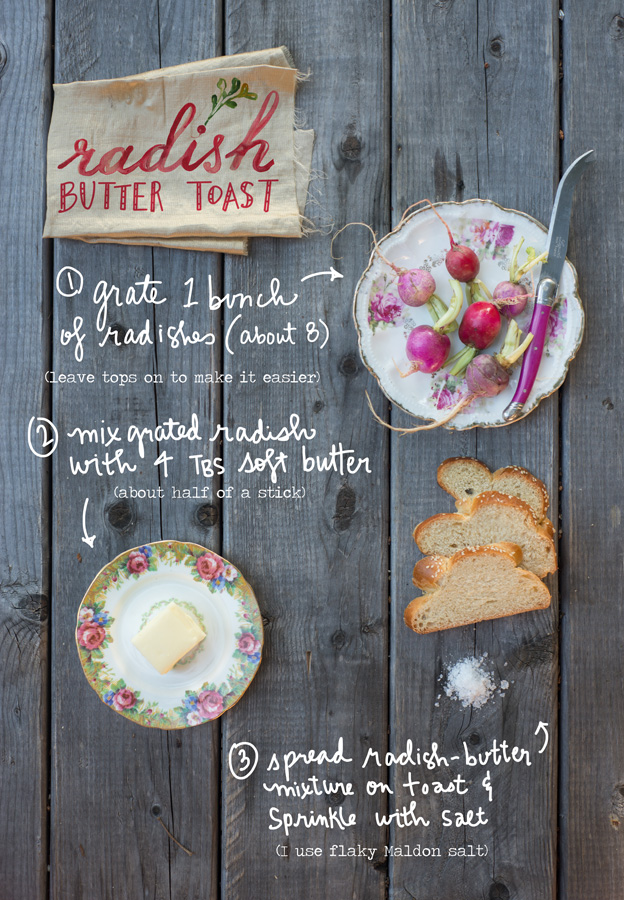 radish
BUTTER TOAST
① grate 1 bunch
of radishes (about 8)
(leave tops on to make it easier)
② mix grated radish
with 4 TBS soft butter
(about half of a stick)
③ spread radish-butter
mixture on toast &
Sprinkle with salt
(I use flaky Maldon salt)